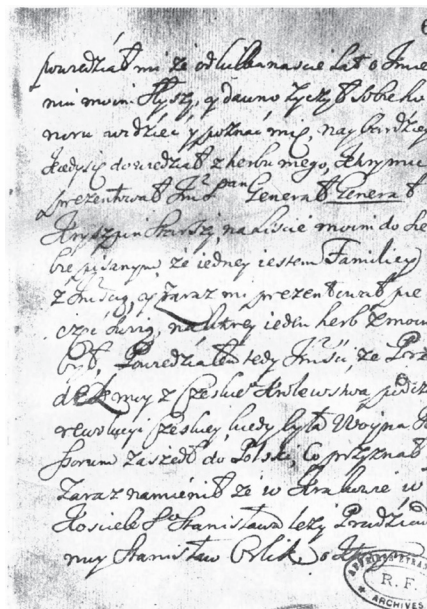 powiedział mi że od kilkanascie lat o Jmie
niu moim słyszy, y dawno życzył sobie ho
noru widzieć y poznać mię, naybardziey
kiedyś dowiedział z herbu mego, który mu
prezentował Jmś Pan Generał Generał
Kryszpin Starszy, na liście moim do he
bie pisanym, że iedney iestem Familiey
z Jmścią, y zaraz mi prezentował pie
częć swoią, na ktorey ieden herb z moim
był, Powiedziałem tedy Jmści, że
z Czeskiego Krolewstwa podczas
rewolucyi Czeskiey, kiedy była Woyna
zaszedł do Polski, Co przyznał
Zaraz namienił że w Krakowie w
Kosciele Sgo Stanisława leży Pradziad
moy Stanisław Orlik, o
R. F.
ARCHIVES